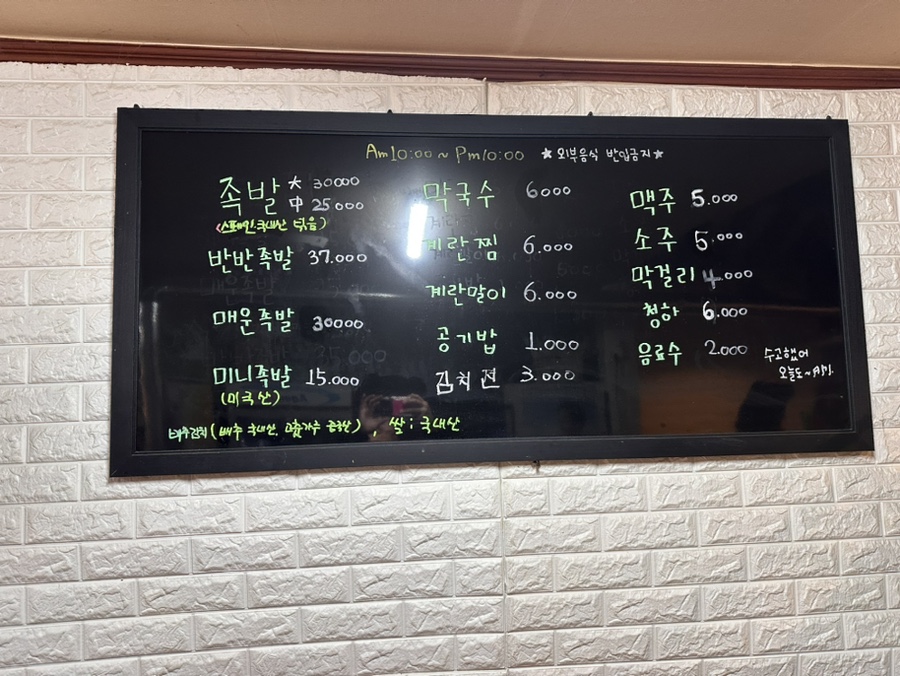 Am10:00 ~ Pm10:00 ★외부음식 반입금지★
족발 大 30000
中 25000
(스페인.국내산 섞음)
반반족발 37.000
매운족발 30000
미니족발 15.000
(미국산)
막국수 6000
계란찜 6.000
계란말이 6.000
공기밥 1.000
김치전 3.000
맥주 5.000
소주 5.000
막걸리 4.000
청하 6.000
음료수 2.000
수고했어
오늘도~
배추김치 (배추 국내산, 고춧가루 중국산), 쌀: 국내산